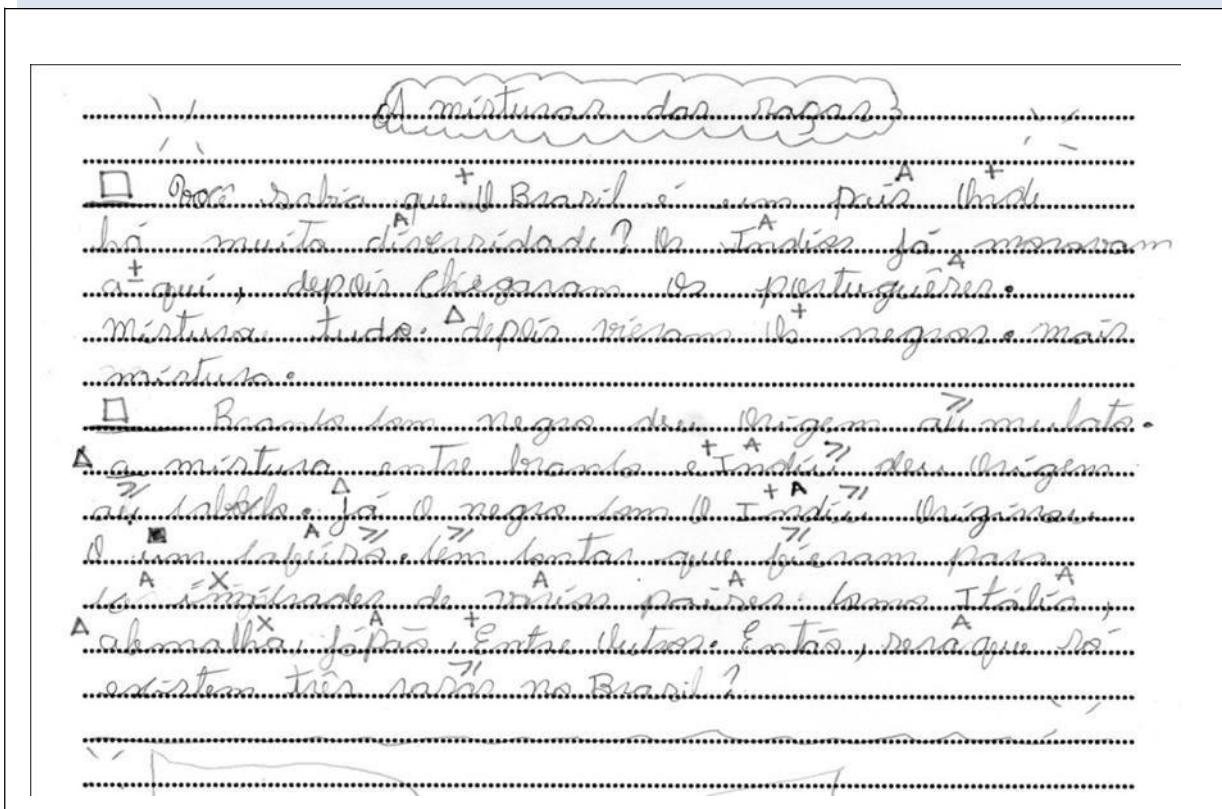 A misturar das raças
Você sabia que O Brasil é um país Onde
há muita diverridade? Os Indios já moravam
a qui, depois chegaram os portuguêses.
mistura tudo. depois vieram Os negros. mais
mistura.
Branco com negro deu Origem au mulato.
a mistura entre branco e Indiu deu Origem
au caboclo. já O negro com O Indiu Originou
O um cafuiso. cem contar que fieram para
ca imigrades de varios paises. como Itália,
alemalha, jápão, Entre Outros. Então, seraque só
existem três rasas no Brasil?